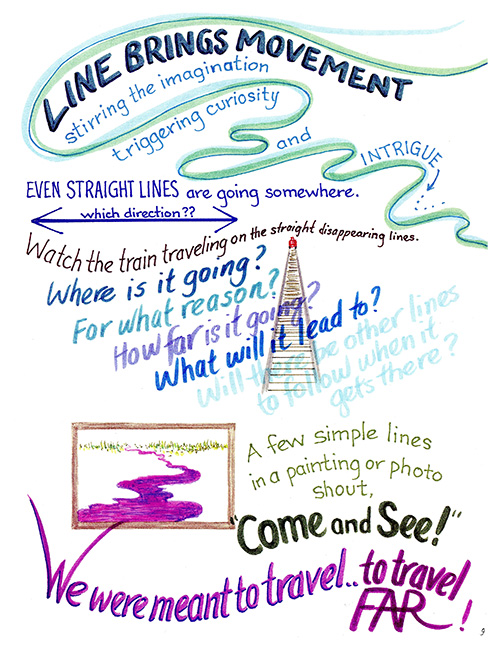 LINE BRINGS MOVEMENT
stirring the imagination
triggering curiosity
and
INTRIGUE
EVEN STRAIGHT LINES are going somewhere.
which direction??
Watch the train traveling on the straight disappearing lines.
Where is it going?
For what reason?
How far is it going?
What will it lead to?
Will there be other lines
to follow when it
gets there?
A few simple lines
in a painting or photo
shout,
"Come and See!"
We were meant to travel.. to travel
FAR!
9